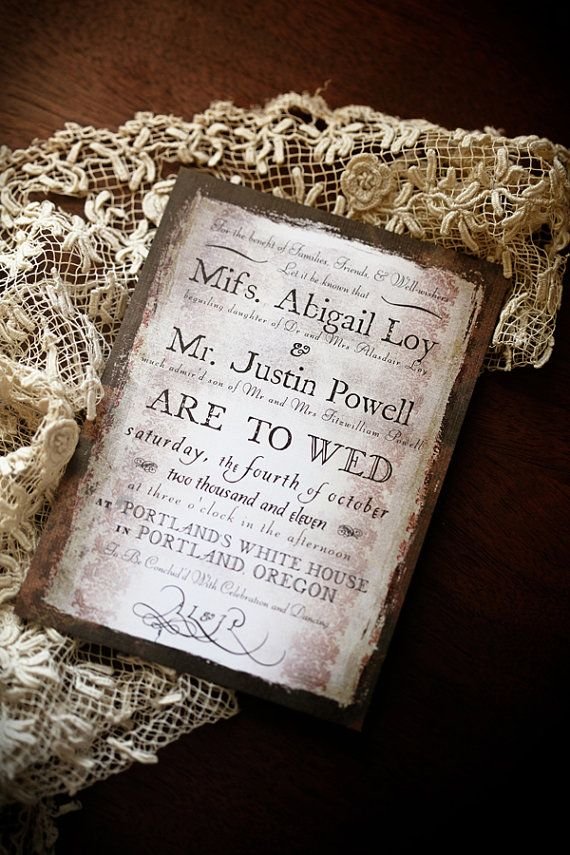 For the benefit of Families, Friends, & Wellwishers
Let it be known that
Mifs. Abigail Loy
beguiling daughter of Dr and Mrs Alasdair Loy
&
Mr. Justin Powell
much admir'd son of Mr and Mrs Fitzwilliam Powell
ARE TO WED
saturday, the fourth of october
two thousand and eleven
at three o clock in the afternoon
AT PORTLAND'S WHITE HOUSE
IN PORTLAND OREGON
To Be Conclud'd With Celebration and Dancing